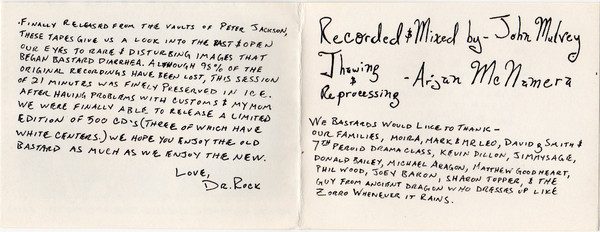 -Finally Released from the vaults of Peter Jackson,
these tapes give us a look into the past & open
our eyes to rare & disturbing images that
began Bastard Diarrhea. Although 95% of the
original recordings have been lost, this session
of 21 minutes was finely preserved in ice.
After having problems with customs & my mom
we were finally able to release a limited
edition of 500 CD's (three of which have
white centers.) We hope you enjoy the old
bastard as much as we enjoy the new.
Love,
Dr. Rock
Recorded & Mixed by - John Mulvey
Thawing
&
Reprocessing
- Arjan McNamera
We Bastards Would Like to Thank -
our families, Moira, Mark & Mr Leo, David & Smith &
7th Peroid Drama Class, Kevin Dillon, Jimmy Sage,
Donald Bailey, Michael Aragon, Matthew Goodheart,
Phil Wood, Joey Baron, Sharon Topper, & the
guy from Ancient Dragon who dresses up like
Zorro whenever it rains.